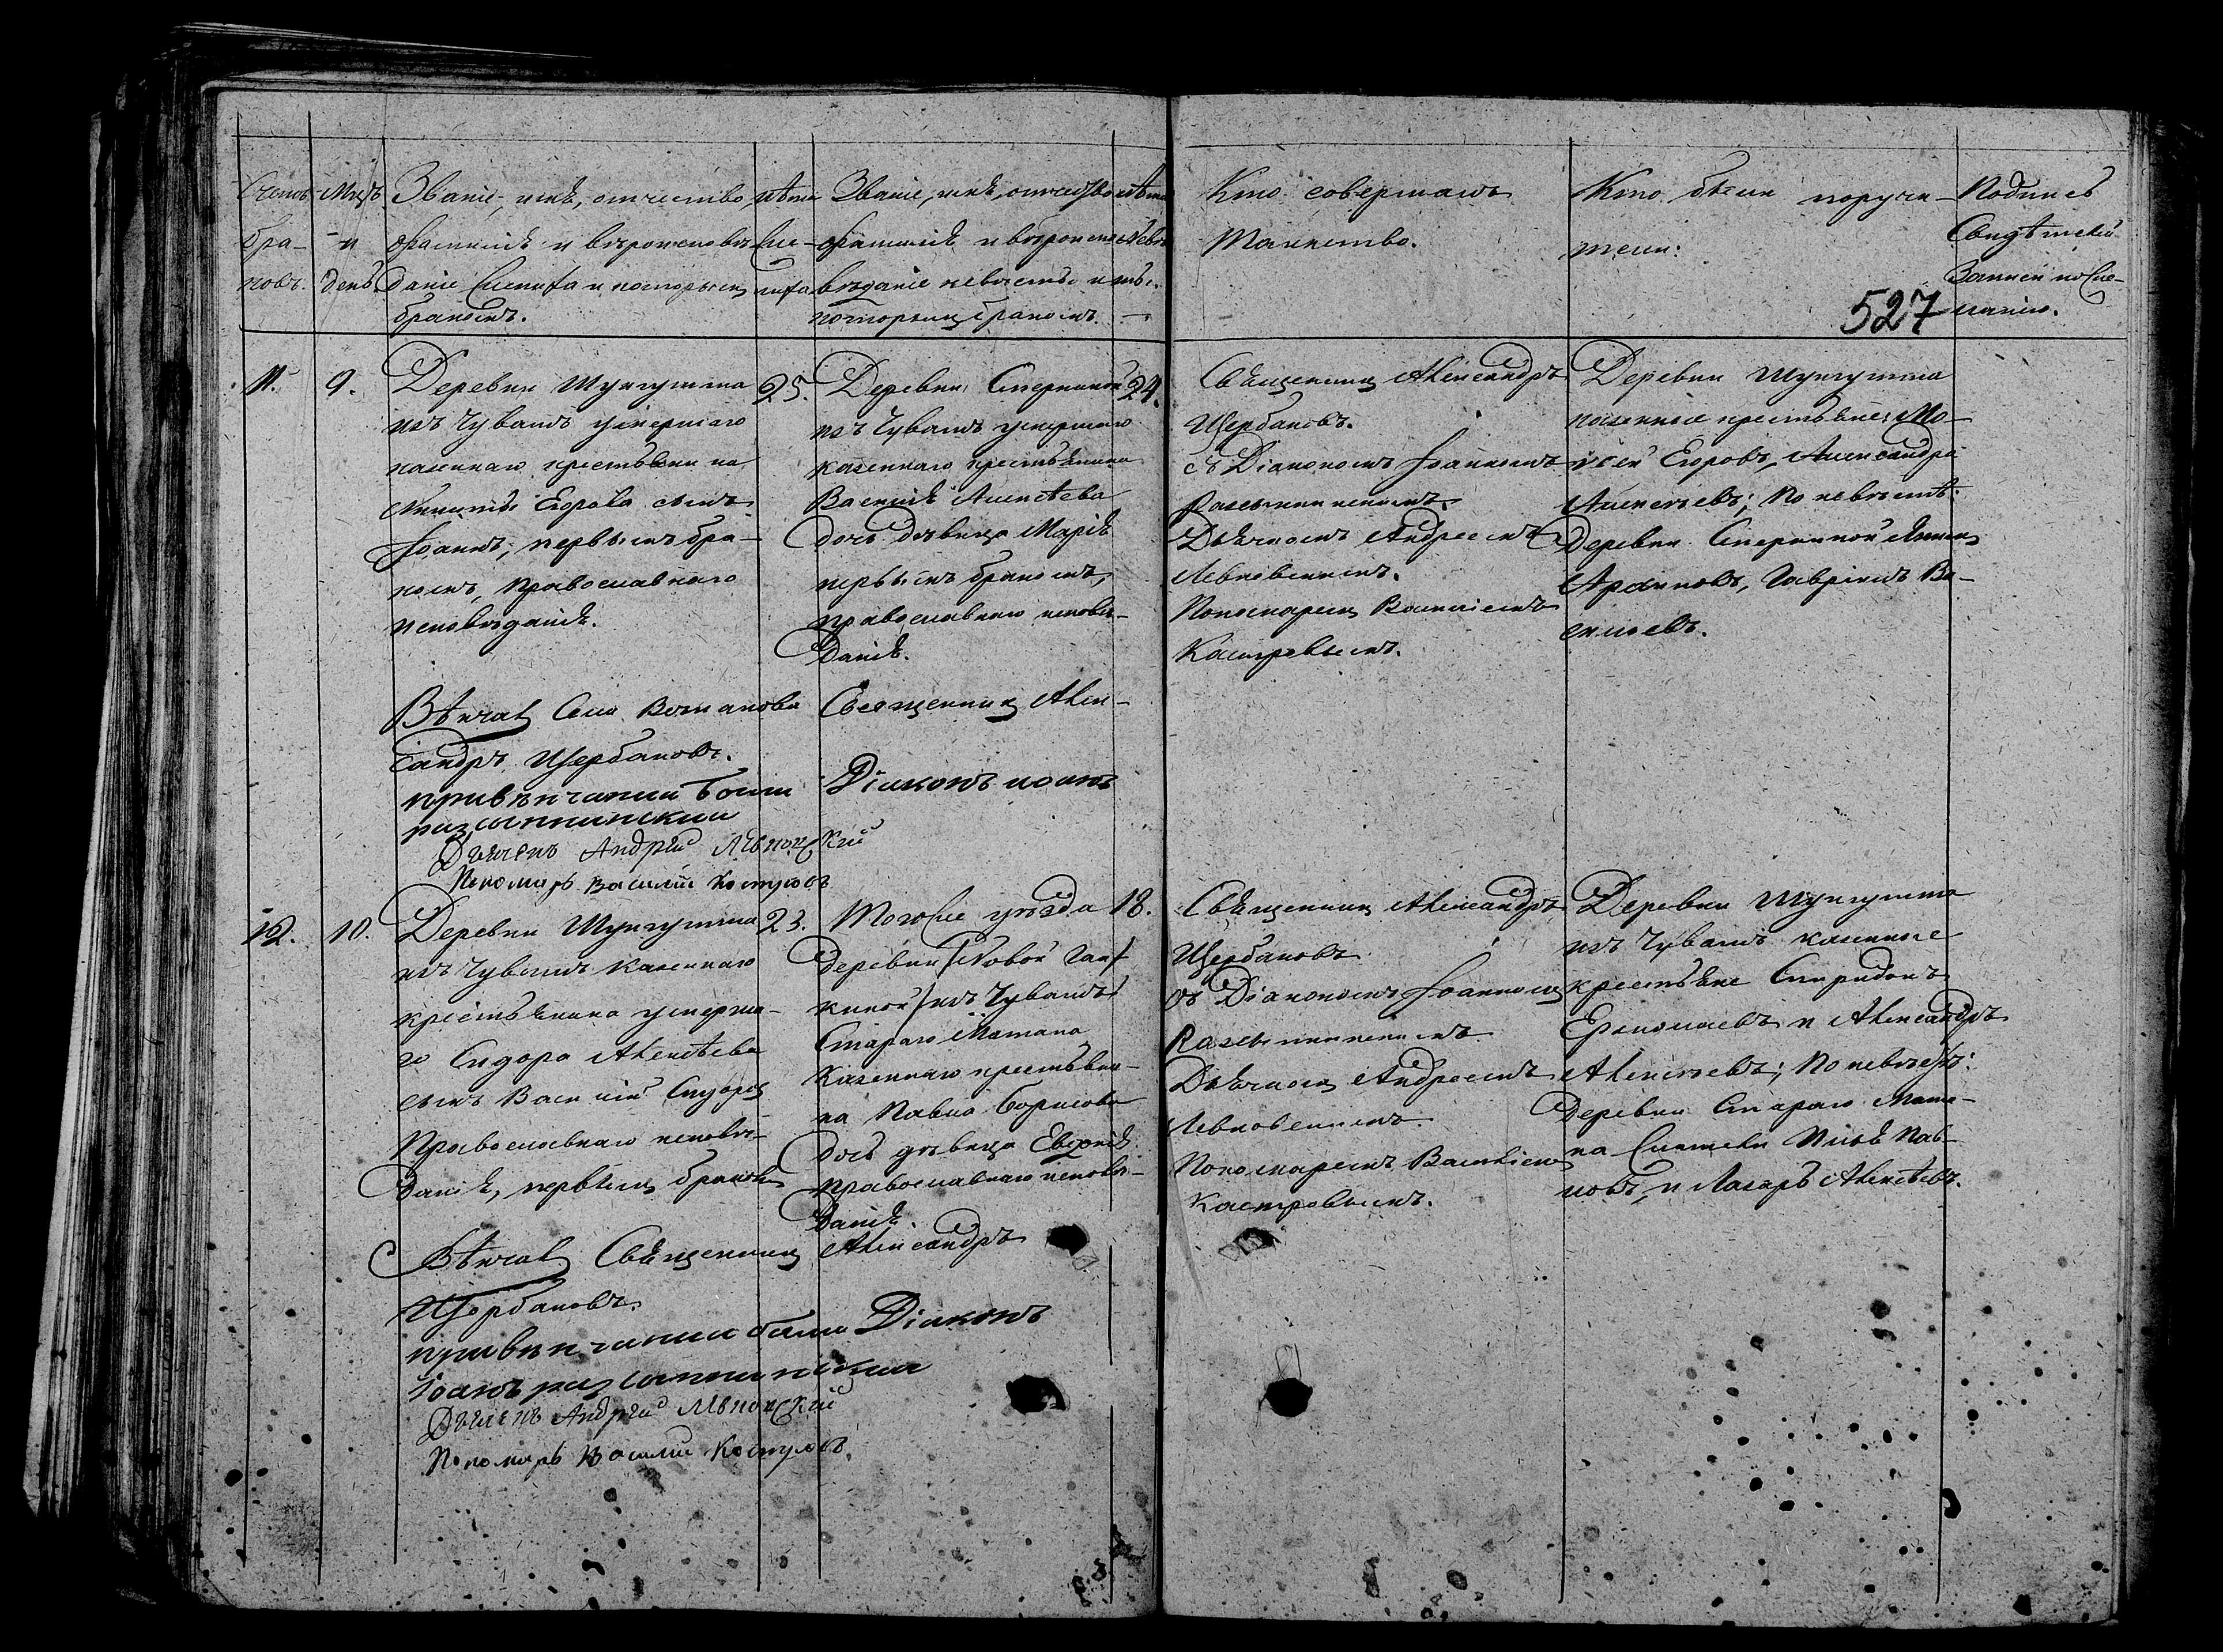 Счетъ
бра-
ковъ.
Мцъ
и
день
Званіе, имя, отчество,
фамилія и вѣроисповѣ-
даніе Жениха и которымъ
бракомъ.
лѣта
Же-
ниха
Званіе, имя, отчество
фамилія и вѣроиспо-
вѣданіе невѣсты и
которымъ бракомъ.
лѣта
Невѣ-
сты.
Кто совершалъ
Таинство.
Кто были поручи-
тели:
Подпись
Свидѣтелей
Записи по Же-
ланію.
527
11.
9.
Деревни Шунгутта
изъ Чувашъ умершаго
казеннаго крестьяни на
Никиты Егорова сынъ
Іоаннъ, первымъ бра-
комъ, Православнаго
исповѣданія.
25.
Деревни
изъ Чувашъ умершаго
казеннаго крестьянина
Василія Алексѣева
дочь дѣвица Марія
первымъ бракомъ,
православнаго исповѣ-
данія.
24.
Священникъ Александръ
Щербаковъ.
съ Діакономъ Іоанномъ
Дьячкомъ Андреемъ
Левковскимъ.
Пономаремъ Василіемъ
Деревни Шунгутта
казенные крестьяне: Мо-
исей Егоровъ, Александръ
Алексѣевъ; По невѣстѣ:
Деревни
Гавріилъ Ва-
сильевъ.
Вѣнчалъ Священникъ Алек-
сандръ Щербаковъ.
привѣнчании были Діаконъ иоанъ
Дьячекъ Андрей Левковский
Пономарь Василий
12.
10.
Деревни Шунгутта
изъ Чувашъ казеннаго
крестьянина умерша-
го Сидора Алексѣева
сынъ Василій Сидоровъ
Православнаго исповѣ-
данія, первымъ бракомъ
23.
Тогоже уѣзда
деревни Новой Ган-
киной (изъ Чувашъ)
Стараго Матака
Казеннаго крестьяни-
на Павла Борисова
дочь дѣвица Евдокія
православнаго исповѣ-
данія.
18.
Священникъ Александръ
Щербаковъ
съ Діакономъ Іоанномъ
Дьячкомъ Андреемъ
Левковскимъ.
Пономаремъ Василіемъ
Деревни Шунгутта
изъ Чувашъ казенные
крестьяне Спиридонъ
Ермолаевъ и Александръ
Алексѣевъ; По невѣстѣ:
Деревни Стараго Мата-
ка
и Лазарь Алексѣевъ.
Вѣнчалъ Священникъ Александръ
Щербаковъ.
привѣнчании были Діаконъ
Іоанъ
Дьячекъ Андрей Левковский
Пономарь Василий